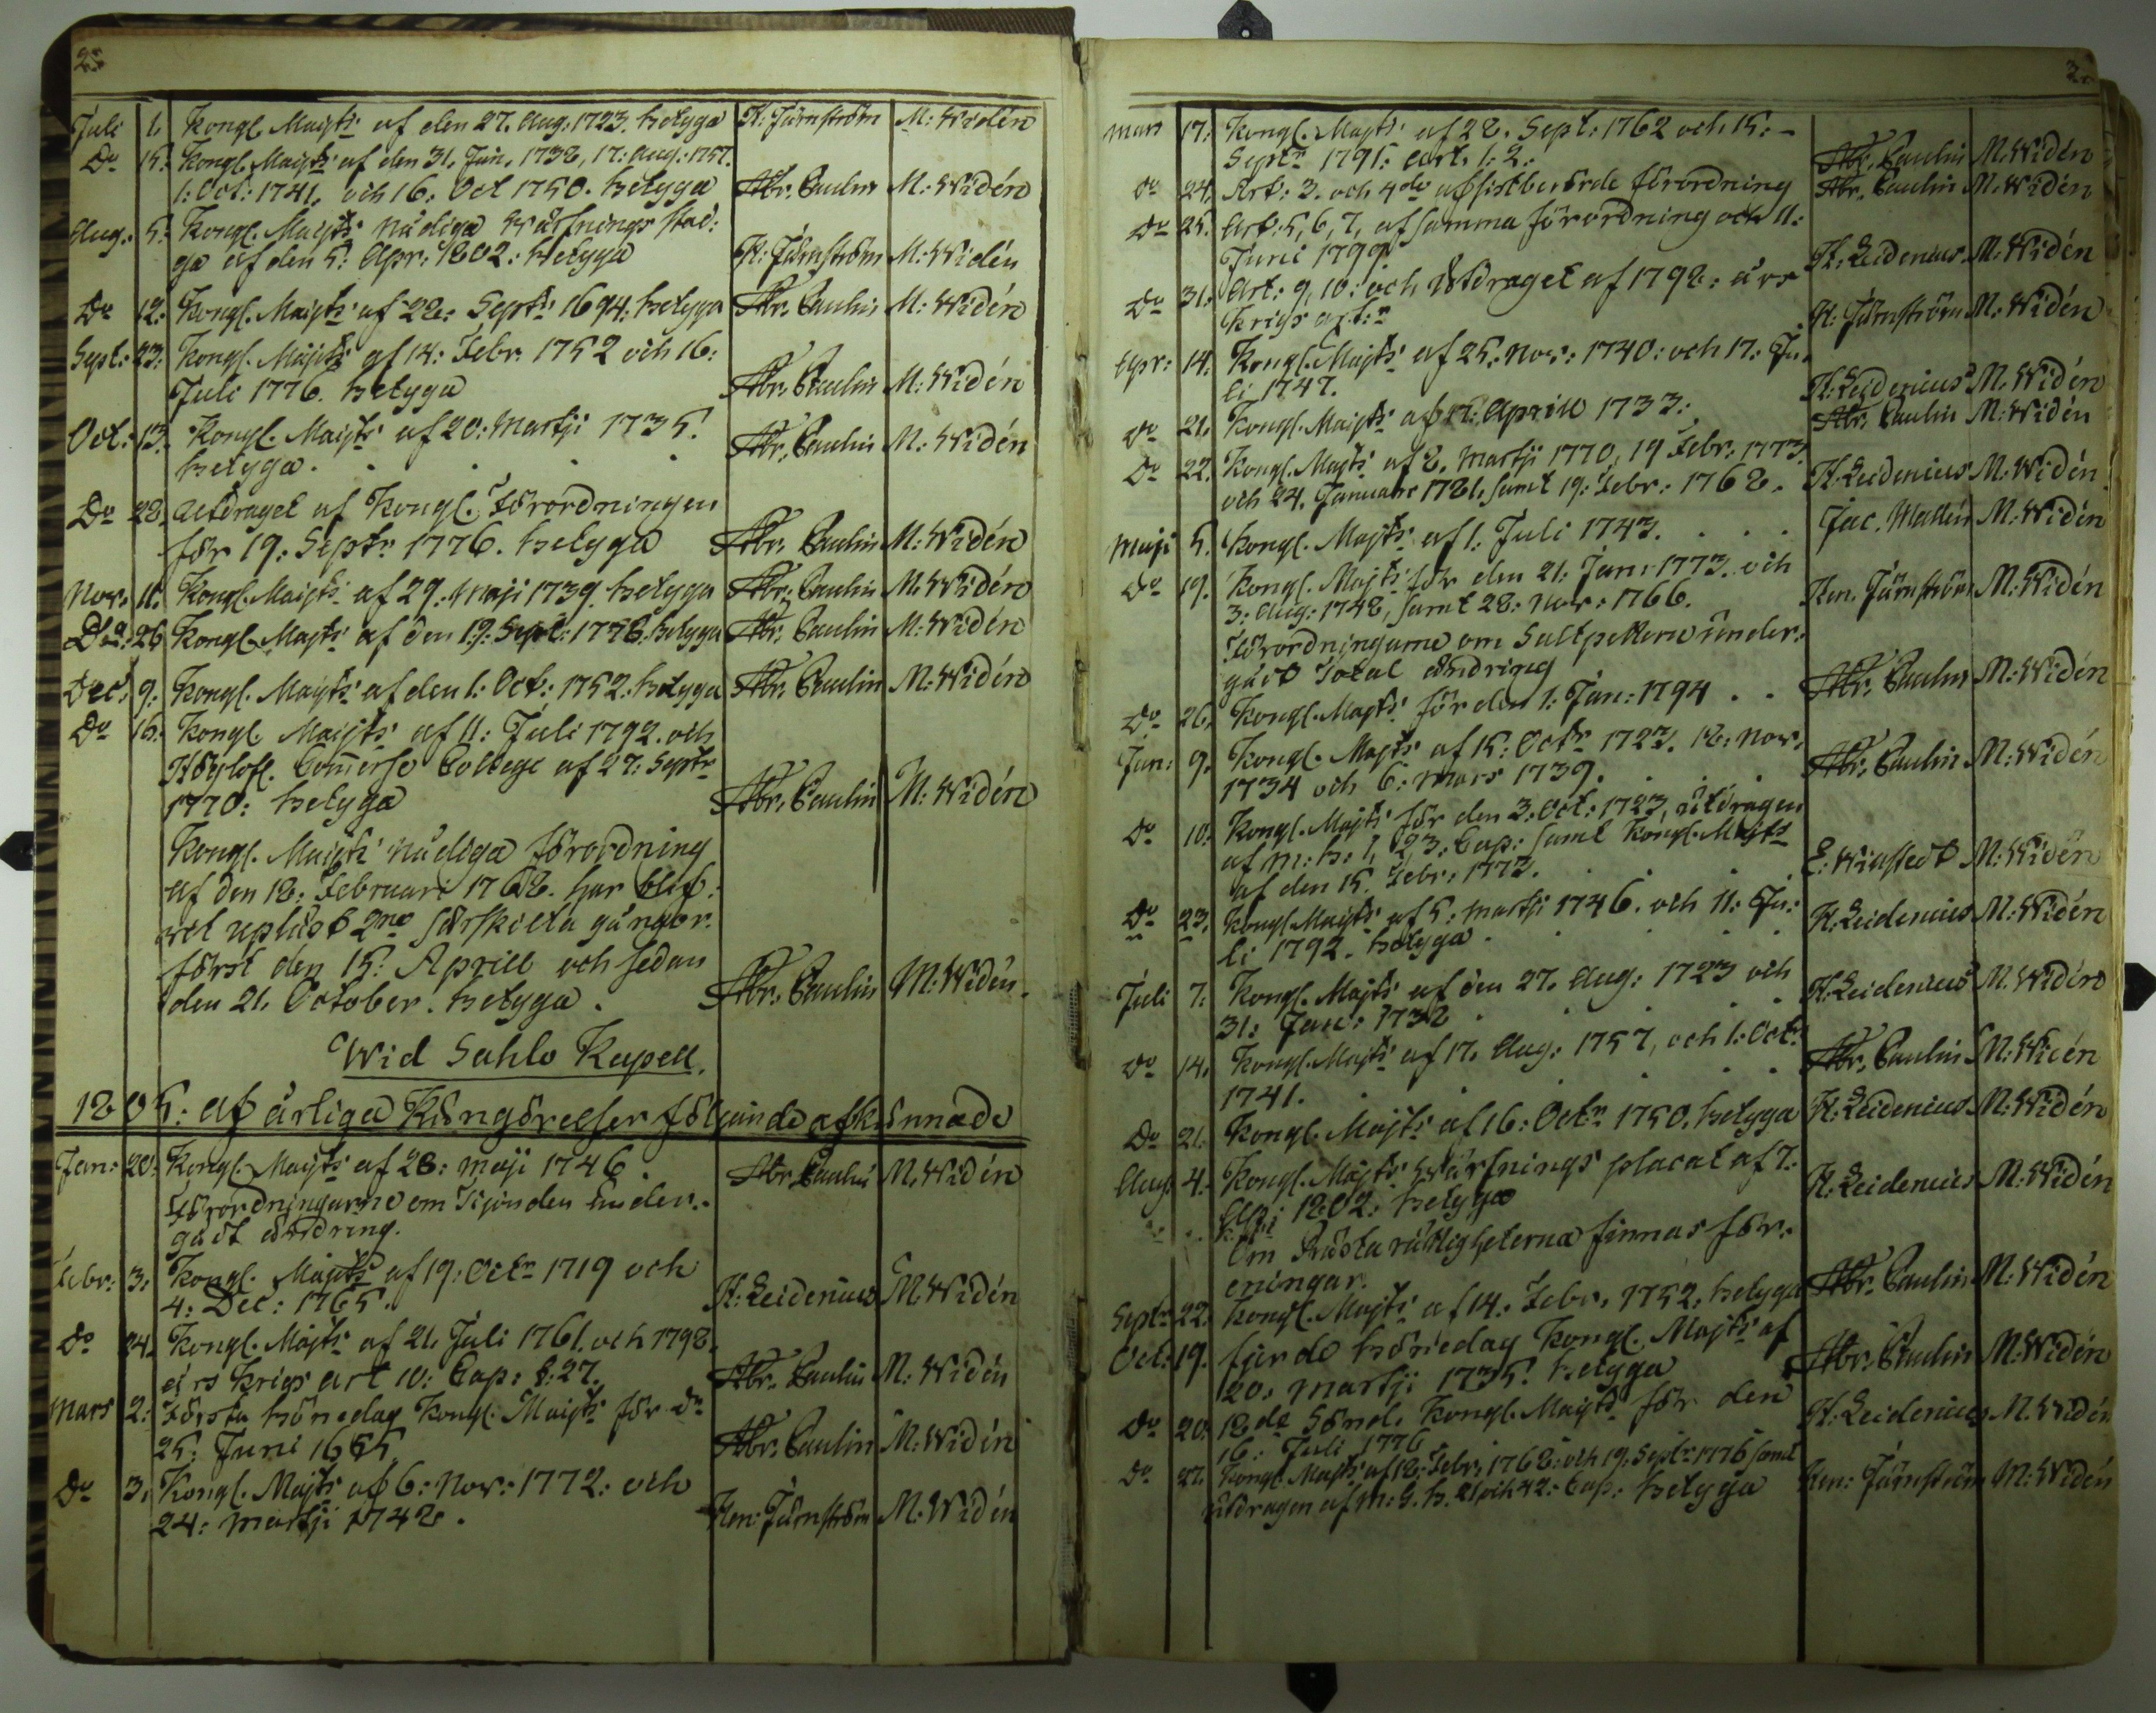 Juli 1. Kongl. Maijts af den 27. Aug: 1723. betyga H: Järnström M: Widén
Do 15: Kongl. Maijts af den 31. Jan. 1738, 17: Aug: 1757.
1: Oct: 1741, och 16. Oct 1750. betyga Abr. Paulin M: Widén
Aug. 5: Kongl. Maijts Nådiga Wärfnings stad:
ga af den 5: Apr: 1802: betyga H: Järnström M: Widén
Do 12: Kongl. Maijts af 22: Septr 1694: betyga Abr. Paulin M: Widén
Sept: 23: Kongl. Maijts af 14: Febr. 1752 och 16:
Juli 1776. betyga Abr. Paulin M: Widén
Oct: 13. Kongl. Maijts af 20: Martji 1735.
betyga. Abr. Paulin M: Widén
Do 28. utdraget af Kongl. Förordningen
för 19: Septr 1776. betyga Abr. Paulin M: Widén
Nov. 11. Kongl. Maijts af 29. Maji 1739. betyga Abr. Paulin M: Widén
26 Kongl. Majts af den 19: Sept: 1776. betyga Abr. Paulin M: Widén
Dec: 9: Kongl. Maijts af den 1: Oct: 1752. betyga Abr. Paulin M: Widén
Do 16: Kongl. Maijts af 11: Juli 1792. och
Höglofl. Comerse College af 27: Septr
1770: betyga Abr. Paulin M: Widén
Kongl. Maijts nådiga förordning
af den 18: Februari 1768. har blif:
wet upläst 2ne särskilta gånger.
först den 15: Aprill och sedan
den 21. October. betyga. Abr. Paulin M: Widén.
Wid Sahlo Kapell.
1805: af årliga Kungörelser följande afkunnade
Jan: 20: Kongl. Maijts af 28: Maji 1746. Abr. Paulin M. Widén
Förordningarne om Tijonden under.
gådt ändring.
Febr: 3: Kongl. Majts af 19: Octr 1719 och
4: Dec: 1765. H: Leidenius M. Widén
Do 24. Kongl. Majts af 21. Juli 1761. och 1798.
års Krigs art 10: Cap: §: 27. Abr. Paulin M: Widén
Mars 2: Första bönedag Kongl. Maijts för dn
25: Juni 1665. Abr. Paulin M: Widén
Do 3. Kongl. Majts af 6: Nov: 1772: och
24: Martji 1748. Hen: Järnström M: Widén
Mars 17: Kongl. Majts af 28. Sept: 1762 och 15:
Septr 1791: art. 1: 2: Abr. Paulin M. Widén
Do 24. Art: 3. och 4de af sistberörde förordning Abr. Paulin M. Widén
Do 25. Art: 5, 6, 7, af samma förordning och 11:
Juni 1799. H. Leidenius M: Widén
Do 31: Art: 9, 10: och Utdraget af 1798: års
Krigs art:r H: Järnström M: Widén
Apr: 14. Kongl. Majts af 25: Nov: 1740: och 17: Ju.
li 1747. H: Leidenius M. Widén
Do 21. Kongl. Maijts af Aprill 1733: Abr. Paulin M: Widén
Do 22. Kongl. Majts af 8. Martji 1770, 19 Febr: 1773.
och 24. Januari 1781. samt 19: Febr: 1768. H. Leidenius M: Widén
Maji 5. Kongl. Majts af 1: Juli 1743. Jac. Wallin M: Widén
Do 19. Kongl. Majts för den 21: Jan: 1773. och
3: Aug: 1748, samt 28: Nov: 1766. Hen. Järnström M: Widén
Förordningarne om Saltpetterne under:
gådt Total ändring
Do 26. Kongl. Majts för den 1: Jan: 1794 . . Abr. Paulin M: Widén
Jun: 9. Kongl. Majts af 15: Octr 1723. 18: Nov.
1734 och 6: Mars 1739. Abr. Paulin M: Widén
Do 10: Kongl. Majts för den 3: Oct: 1723, utdragen
af M: B: 1, 23: Cap: samt Kongl. Majts
af den 15. Febr: 1773. E: Winstedt M: Widén
Do 23. Kongl. Maijts af 5: Martji 1746. och 11: Ju:
li 1792. betyga H: Leidenius M: Widén
Juli 7: Kongl. Majts af den 27. Aug: 1723 och
31: Jan: 1738 H: Leidenius M. Widén
Do 14. Kongl. Majts af 17. Aug: 1757, och 1: Oct:
1741. Abr. Paulin M: Widén
Do 21. Kongl. Majts af 16: Octr 1750. betyga H: Leidenius M: Widén
Aug. 4. Kongl. Majts Wärfnings placat af 7:
Apr: 1802: betyga H: Leidenius M: Widén
Om Prästa rättigheterna finnas för.
eningar.
Septr 22. Kongl. Majts af 14: Febr. 1752. betyga Abr. Paulin M: Widén
Oct: 19. fjerde bönedag Kongl. Majts af
20: Martji 1735. betyga Abr. Paulin M: Widén
Do 20: 18de Sönd. Kongl. Majts för den
16: Juli 1776 H: Leidenius M. Widén
Do 27. Kongl. Majts af 18: Febr: 1768: och 19: Septr 1776 samt
utdragen af M: G. B. 21 och 42: Cap: betyga Hen: Järnström M: Widén